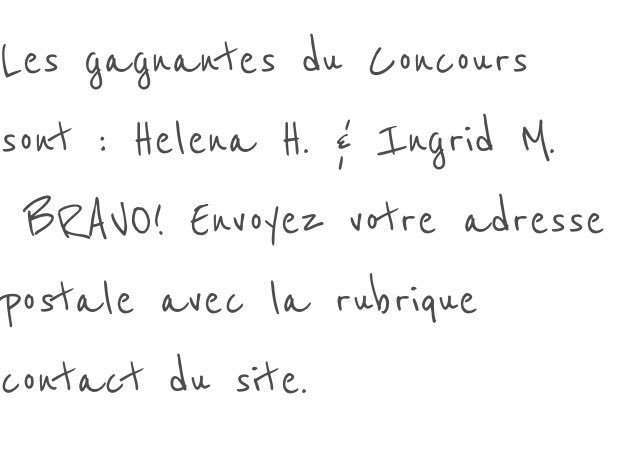 Les gagnantes du concours
sont : Helena H. & Ingrid M.
BRAVO! Envoyez votre adresse
postale avec la rubrique
contact du site.